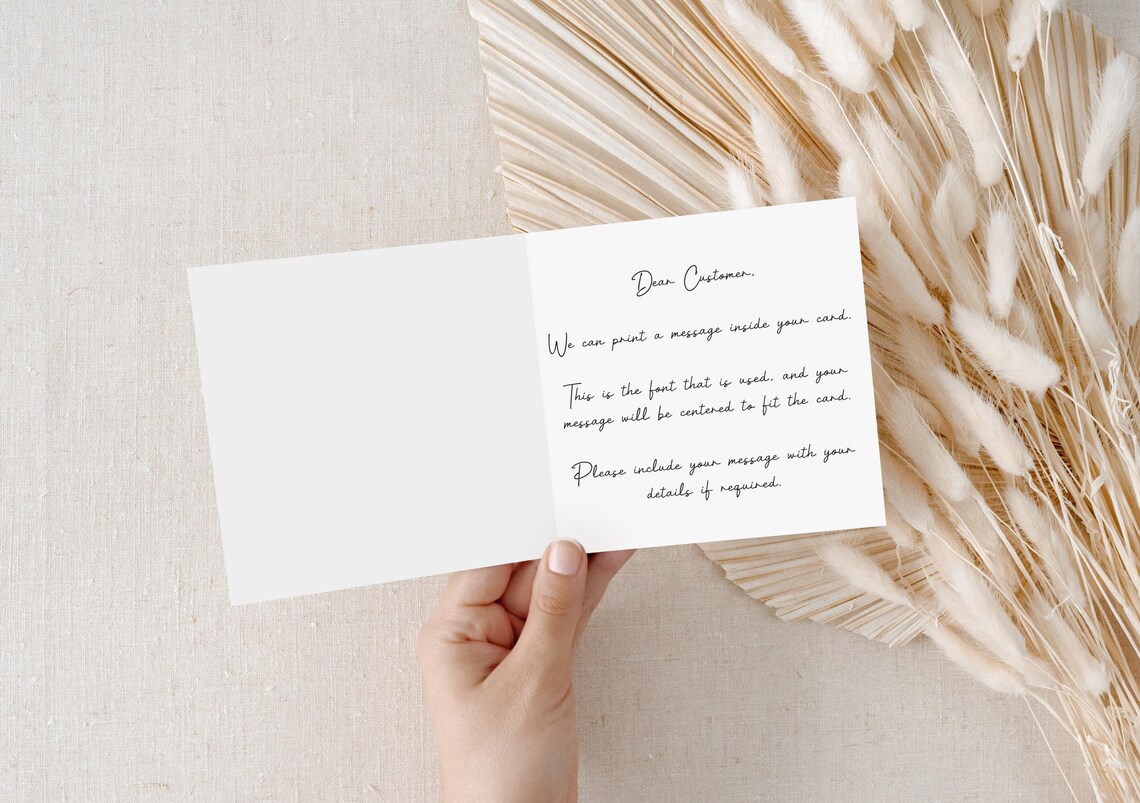 Dear Customer,
We can print a message inside your card.
This is the font that is used, and your
message will be centered to fit the card.
Please include your message with your
details if required.